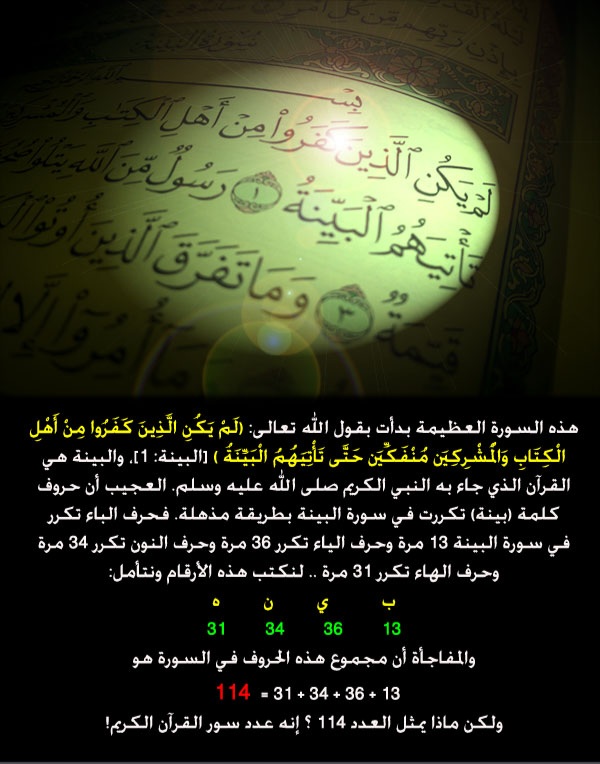 سورة البينة
بِسْـــــم
لَمْ يَكُنِ ٱلَّذِينَ كَفَرُوا۟ مِنْ أَهْلِ ٱلْكِتَـٰبِ
تَأْتِيَهُمُ ٱلْبَيِّنَةُ ١ رَسُولٌ مِّنَ ٱللَّهِ يَتْلُوا۟
قَيِّمَةٌ ٣ وَمَا تَفَرَّقَ ٱلَّذِينَ أُوتُوا۟
أُمِرُوٓا۟ إِلَّا
هذه السورة العظيمة بدأت بقول الله تعالى: (لَمْ يَكُنِ الَّذِينَ كَفَرُوا مِنْ أَهْلِ
الْكِتَابِ وَالْمُشْرِكِينَ مُنْفَكِّينَ حَتَّى تَأْتِيَهُمُ الْبَيِّنَةُ ) [البينة: 1]. والبينة هي
القرآن الذي جاء به النبي الكريم صلى الله عليه وسلم. العجيب أن حروف
كلمة (بينة) تكررت في سورة البينة بطريقة مذهلة. فحرف الباء تكرر
في سورة البينة 13 مرة وحرف الياء تكرر 36 مرة وحرف النون تكرر 34 مرة
وحرف الهاء تكرر 31 مرة .. لنكتب هذه الأرقام ونتأمل:
ب ي ن ه
13 36 34 31
والمفاجأة أن مجموع هذه الحروف في السورة هو
13 + 36 + 34 + 31 = 114
ولكن ماذا يمثل العدد 114 ؟ إنه عدد سور القرآن الكريم!